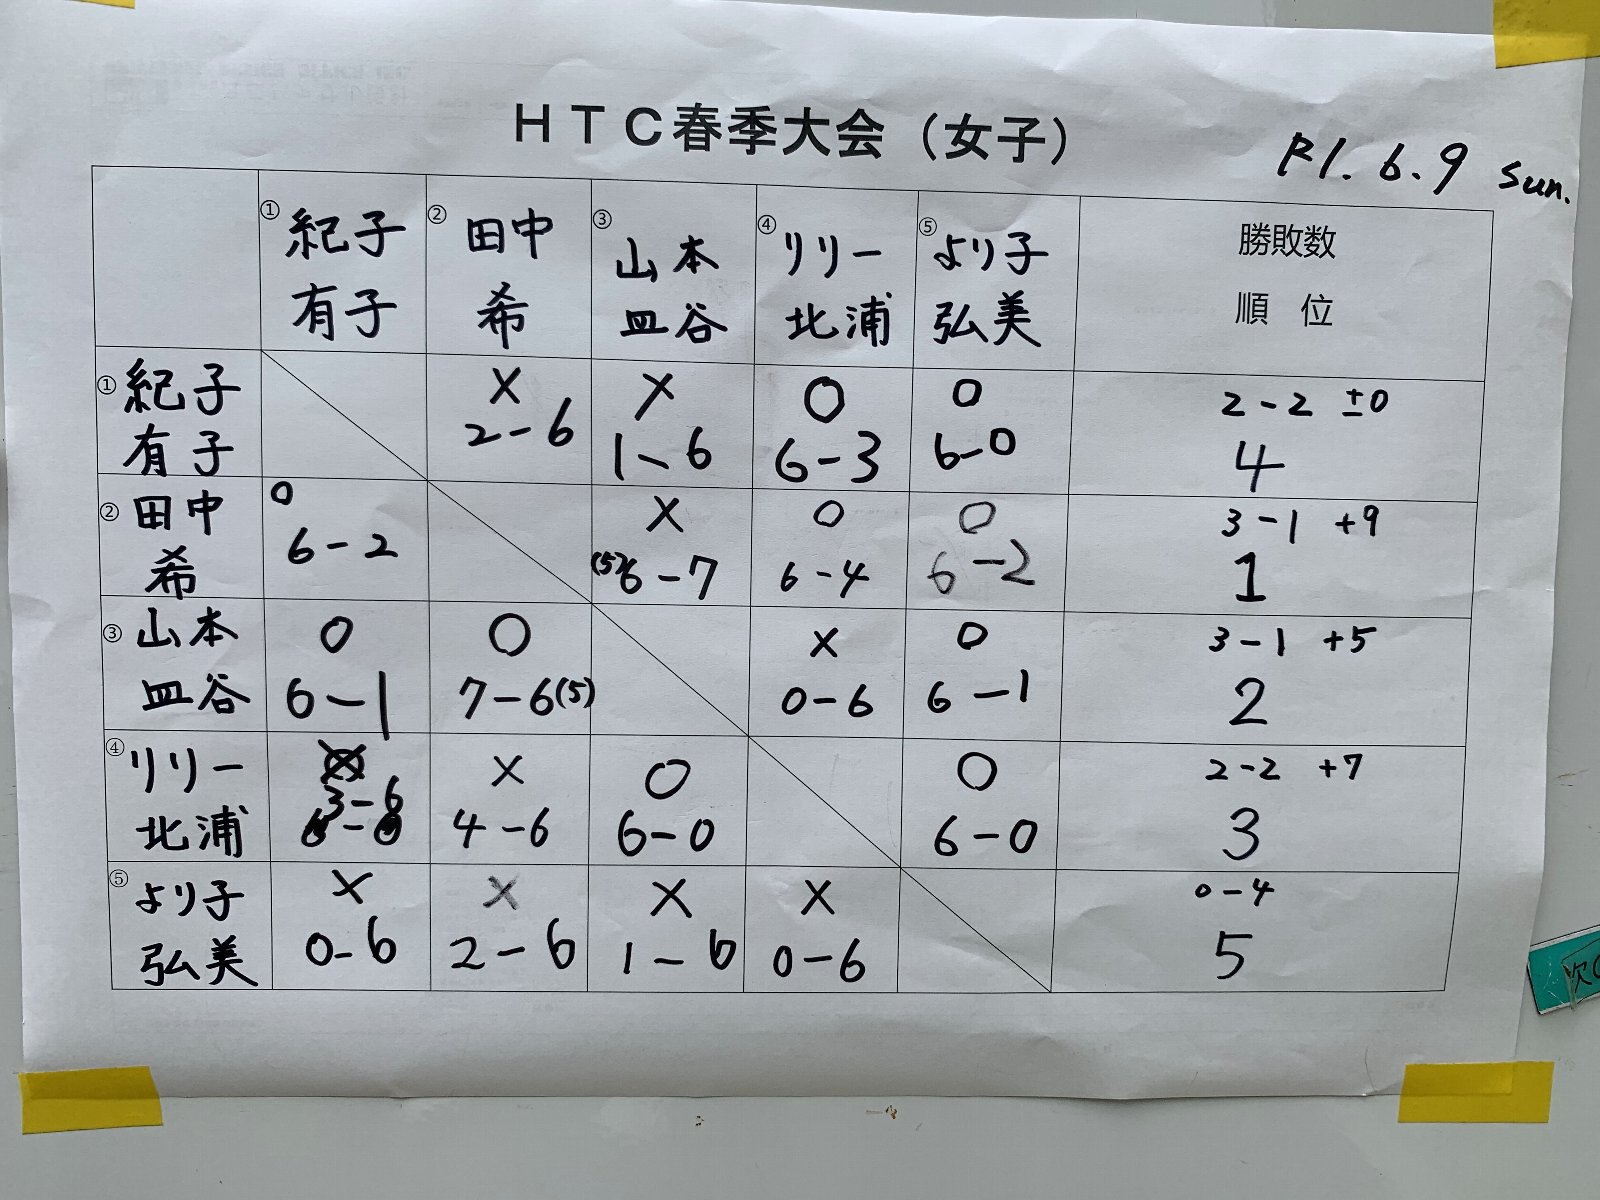 HTC春季大会（女子）
R1.6.9 sun.
① 紀子 有子
② 田中 希
③ 山本 皿谷
④ リリー 北浦
⑤ より子 弘美
勝敗数
順 位
① 紀子 有子
× 2-6
× 1-6
○ 6-3
○ 6-0
2-2 ±0
4
② 田中 希
○ 6-2
× (5)6-7
○ 6-4
○ 6-2
3-1 +9
1
③ 山本 皿谷
○ 6-1
○ 7-6(5)
× 0-6
○ 6-1
3-1 +5
2
④ リリー 北浦
× 3-6
× 4-6
○ 6-0
○ 6-0
2-2 +7
3
⑤ より子 弘美
× 0-6
× 2-6
× 1-6
× 0-6
0-4
5